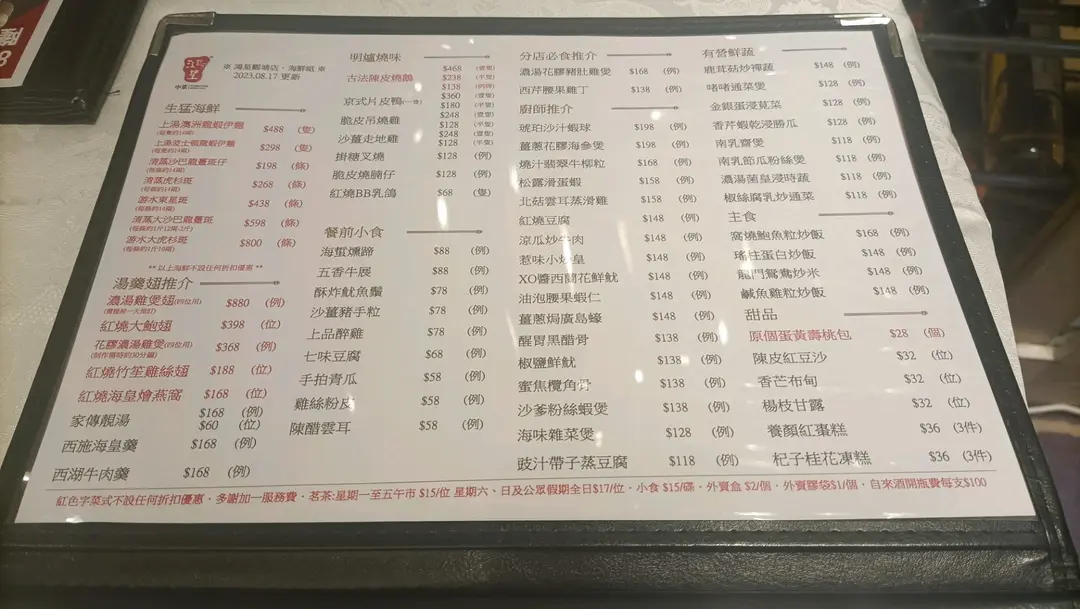 ※ 鴻星觀塘店．海鮮紙 ※
2023.08.17 更新
生猛海鮮
上湯澳洲龍蝦伊麵 $488 (隻)
上湯波士頓龍蝦伊麵 $298 (隻)
清蒸沙巴龍躉斑仔 $198 (條)
清蒸虎杉斑 $268 (條)
游水東星斑 $438 (條)
清蒸大沙巴龍躉斑 $598 (條)
游水大虎杉斑 $800 (條)
**以上海鮮不設任何折扣優惠 **
湯羹翅推介
濃湯雞煲翅(四位用) $880 (例)
(需提前一天預訂)
紅燒大鮑翅 $398 (位)
花膠濃湯雞煲(四位用) $368 (例)
(制作需時約30分鐘)
紅燒竹笙雞絲翅 $188 (位)
紅燒海皇燴燕窩 $168 (位)
家傳靚湯 $168 (例)
$60 (位)
西施海皇羹 $168 (例)
西湖牛肉羹 $168 (例)
明爐燒味
古法陳皮燒鵝 $468 (壹隻)
$238 (半隻)
$138 (例牌)
京式片皮鴨(一食) $360 (壹隻)
$180 (半隻)
脆皮吊燒雞 $248 (壹隻)
$128 (半隻)
沙薑走地雞 $248 (壹隻)
$128 (半隻)
掛糖叉燒 $128 (例)
脆皮燒腩仔 $128 (例)
紅燒BB乳鴿 $68 (隻)
餐前小食
海蜇燻蹄 $88 (例)
五香牛展 $88 (例)
酥炸魷魚鬚 $78 (例)
沙薑豬手粒 $78 (例)
上品醉雞 $78 (例)
七味豆腐 $68 (例)
手拍青瓜 $58 (例)
雞絲粉皮 $58 (例)
陳醋雲耳 $58 (例)
分店必食推介
濃湯花膠豬肚雞煲 $168 (例)
西芹腰果雞丁 $138 (例)
廚師推介
琥珀沙汁蝦球 $198 (例)
薑蔥花膠海參煲 $198 (例)
燒汁翡翠牛柳粒 $168 (例)
松露滑蛋蝦 $158 (例)
北菇雲耳蒸滑雞 $158 (例)
紅燒豆腐 $148 (例)
涼瓜炒牛肉 $148 (例)
惹味小炒皇 $148 (例)
XO醬西蘭花鮮魷 $148 (例)
油泡腰果蝦仁 $148 (例)
薑蔥焗廣島蠔 $148 (例)
醒胃黑醋骨 $138 (例)
椒鹽鮮魷 $138 (例)
蜜焦欖角骨 $138 (例)
沙爹粉絲蝦煲 $138 (例)
海味雜菜煲 $128 (例)
豉汁帶子蒸豆腐 $118 (例)
有營鮮蔬
鹿茸菇炒禪蔬 $148 (例)
啫啫通菜煲 $128 (例)
金銀蛋浸莧菜 $128 (例)
香芹蝦乾浸勝瓜 $128 (例)
南乳齋煲 $118 (例)
南乳節瓜粉絲煲 $118 (例)
濃湯菌皇浸時蔬 $118 (例)
椒絲腐乳炒通菜 $118 (例)
主食
窩燒鮑魚粒炒飯 $168 (例)
瑤柱蛋白炒飯 $148 (例)
龍門鴛鴦炒米 $148 (例)
鹹魚雞粒炒飯 $148 (例)
甜品
原個蛋黃壽桃包 $28 (個)
陳皮紅豆沙 $32 (位)
香芒布甸 $32 (位)
楊枝甘露 $32 (位)
養顏紅棗糕 $36 (3件)
杞子桂花凍糕 $36 (3件)
紅色字菜式不設任何折扣優惠．多謝加一服務費．茗茶:星期一至五午市 $15/位 星期六、日及公眾假期全日$17/位．小食 $15/碟．外賣盒 $2/個．外賣膠袋$1/個．自來酒開瓶費每支$100